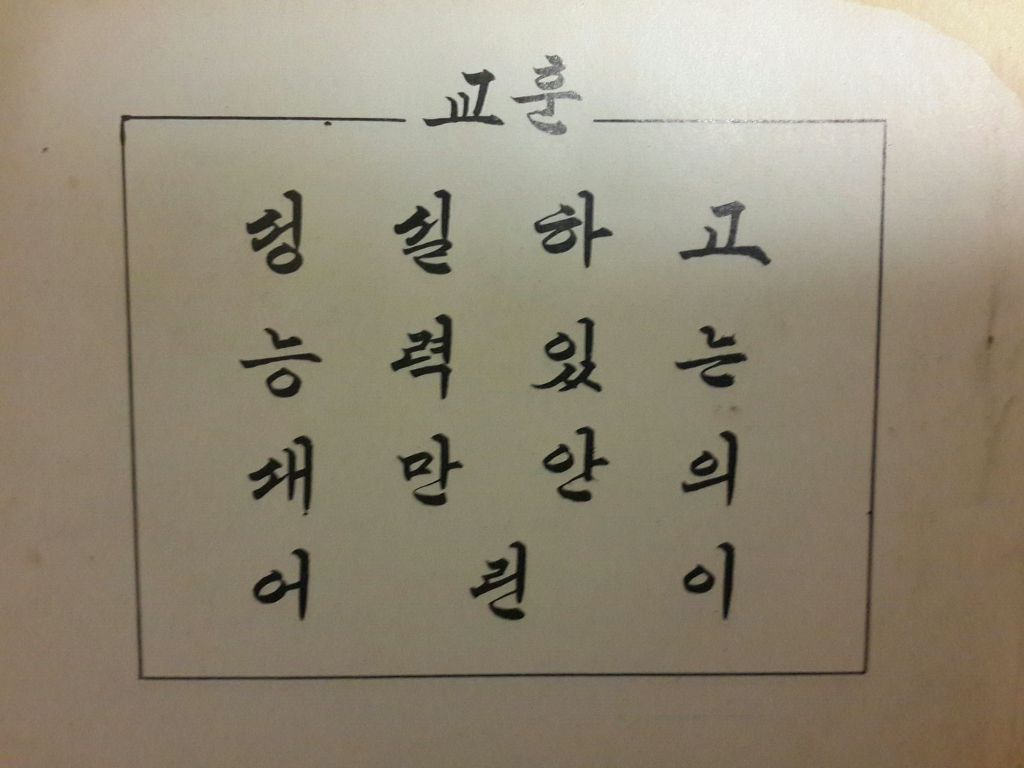 교훈
성실하고
능력있는
새만안의
어린이